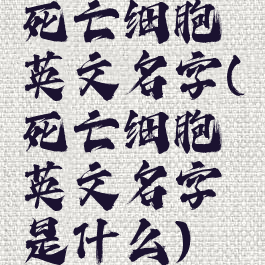 死亡细胞
英文名字(
死亡细胞
英文名字
是什么)